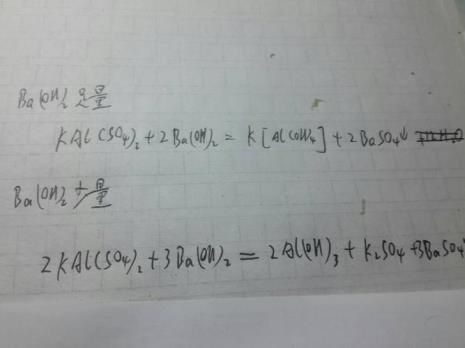 Ba(OH)₂足量
KAl(SO₄)₂+2Ba(OH)₂=K[Al(OH)₄]+2BaSO₄↓
Ba(OH)₂少量
2KAl(SO₄)₂+3Ba(OH)₂=2Al(OH)₃+K₂SO₄+3BaSO₄